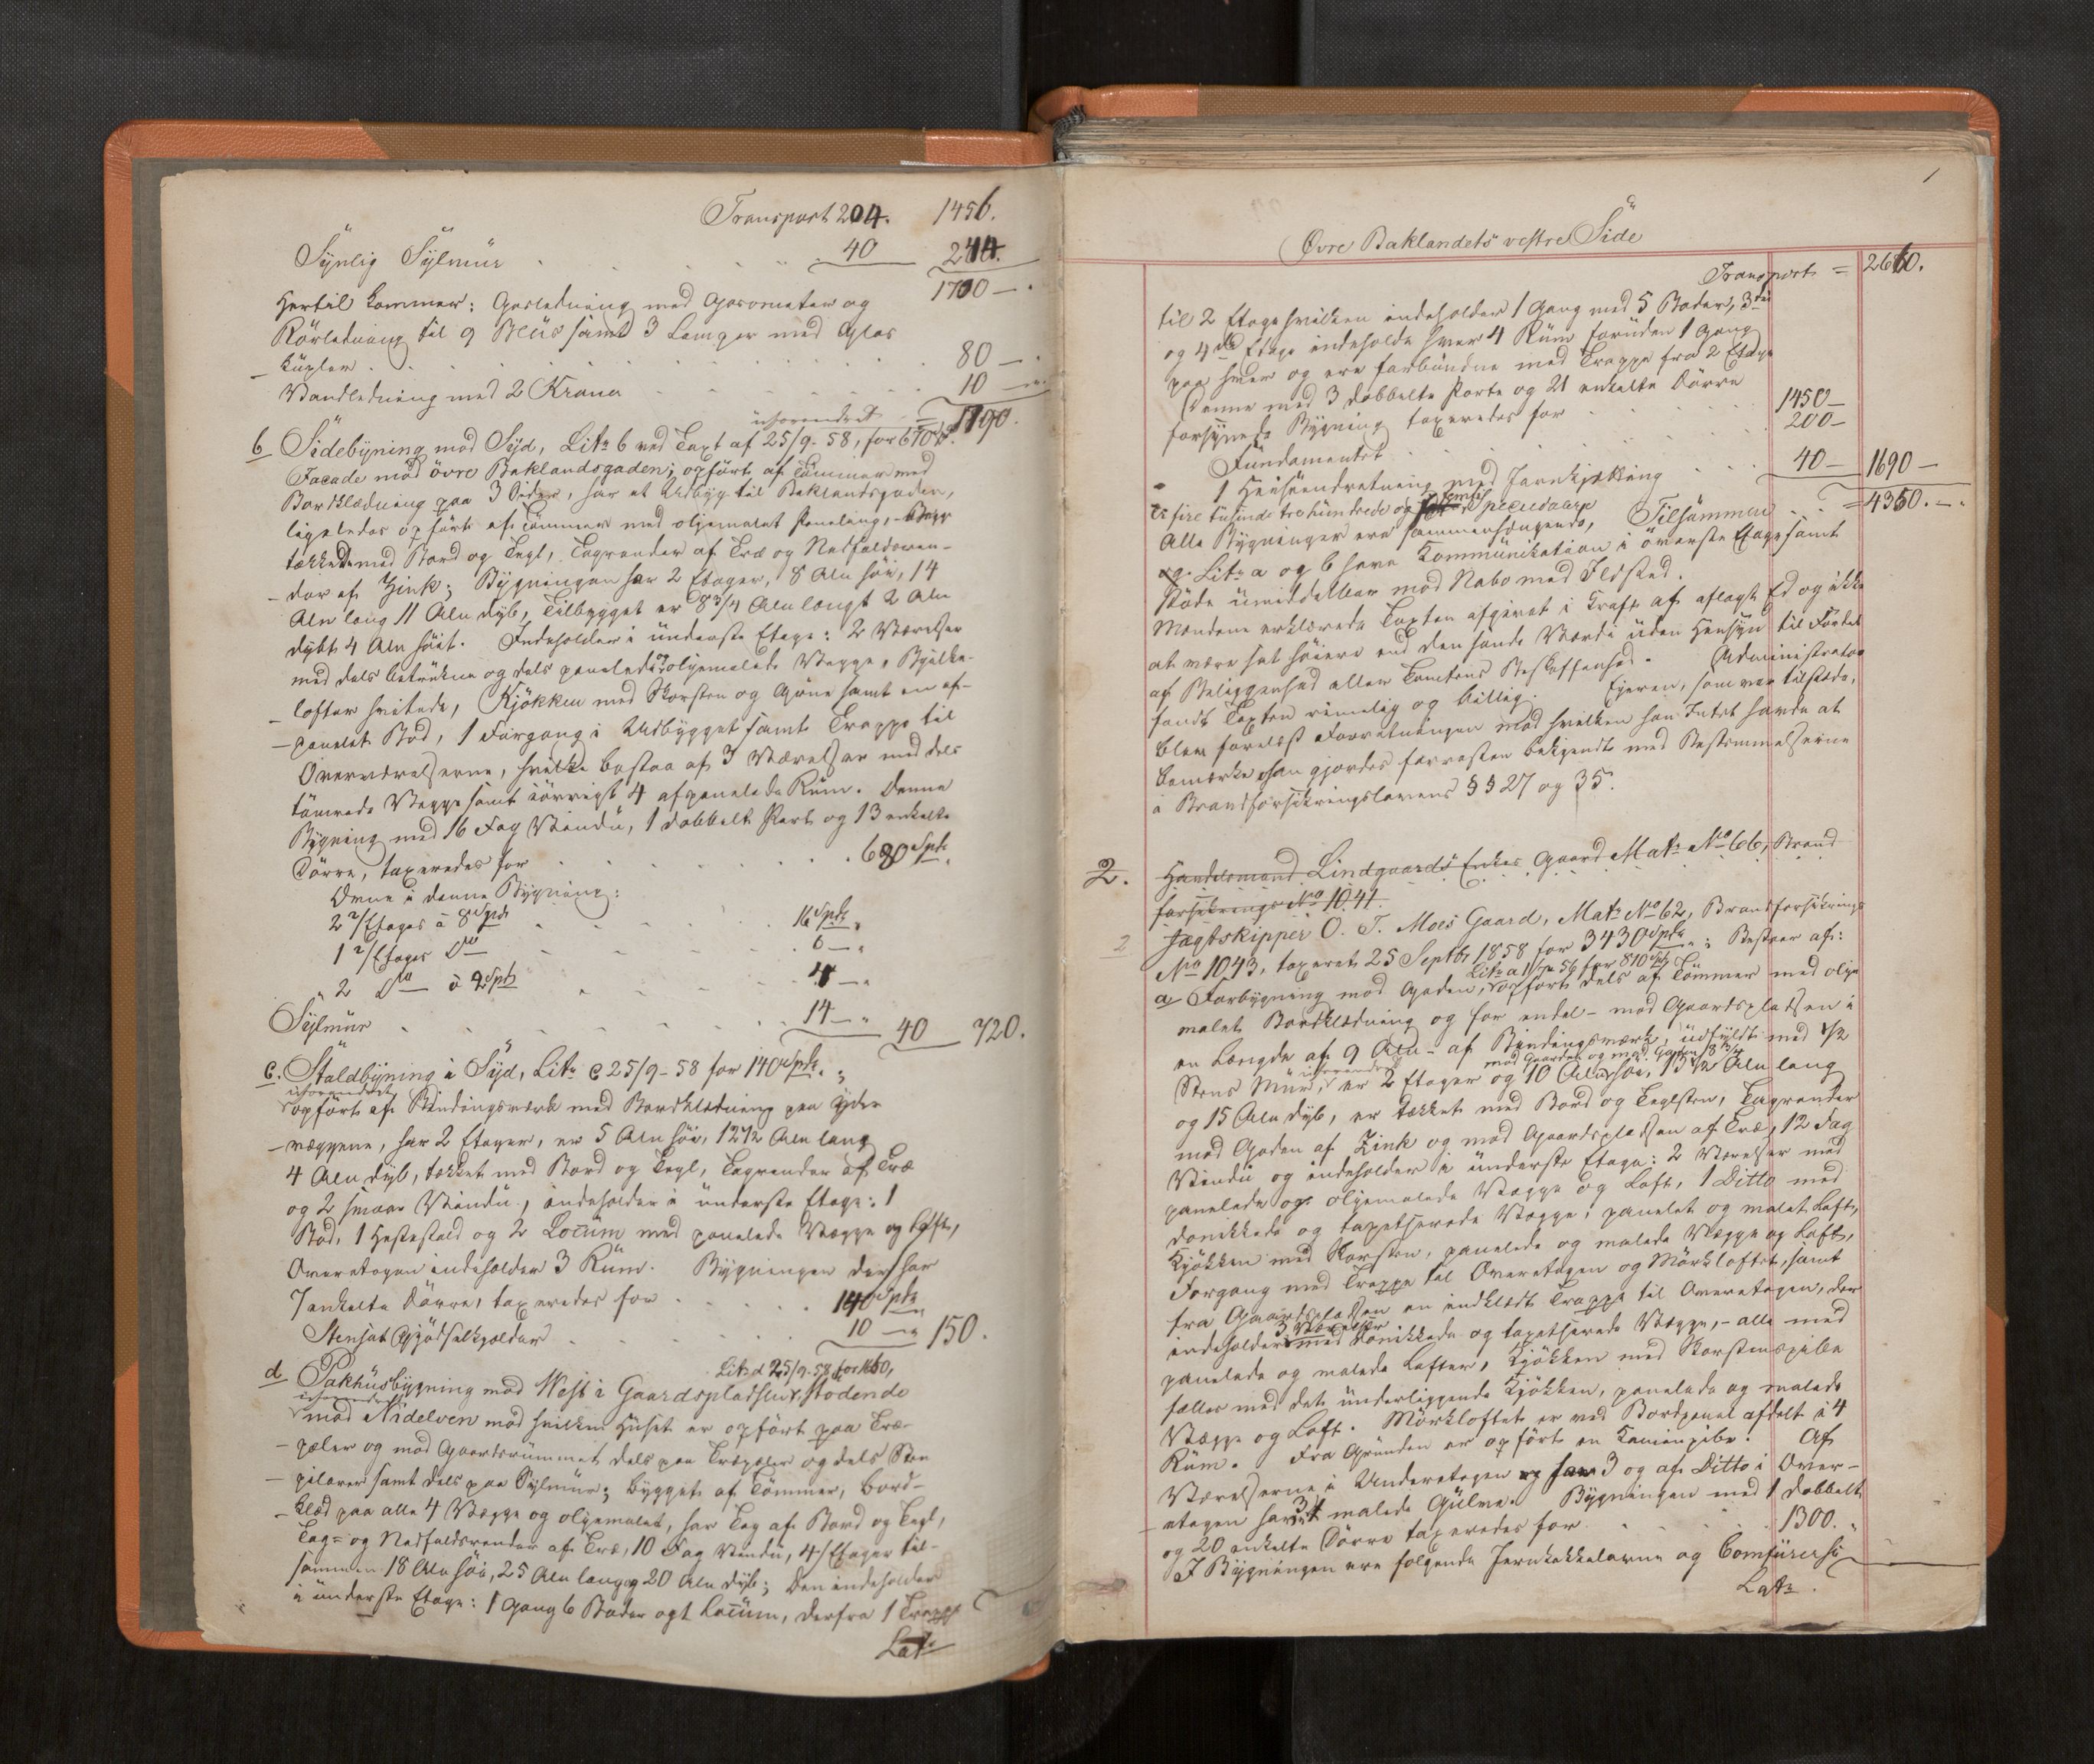 Transport 204. 1456.
Synlig Sylmür . . . . 40 244.
Hertil kommer: Gasledning med Gasometer og 1700 —
Rørledning til 9 Blüs samt 3 Lamper med Glas
kupler . . . . . . . 80 — .
Vandledning med 2 Kraner . . . . 10 — .
uforandret = 1790.
b Sidebygning mod Syd, Litr b ved Taxt af 25/9-58, for 670 Spd.
Facade mod øvre Baklandsgaden; opført af Tømmer med
Bordklædning paa 3 Sider, har et Udbyg til Baklandsgaden,
ligeledes opført af Tømmer med oljemalet Paneling,
tækket med Bord og Tegl, Tagrender af Træ og Nedfaldsren-
der af Zink; Bygningen har 2 Etager, 8 Alen høi, 14
Alen lang 11 Alen dyb, Tilbygget er 8 3/4 Alen langt 2 Alen
dybt 4 Alen høit. Indeholder i underste Etage: 2 Værelser
med dels betrukne og dels panelede og oljemalede Vægge, Bjelke-
lofter hvitede, Kjøkken med Skorsten og Gruve samt en af-
panelet Bod, 1 Forgang i Udbygget samt Trappe til
Overværelserne, hvilke bestaa af 3 Værelser med dels
tømrede Vægge samt iøvrigt 4 afpanelede Rum. Denne
Bygning med 16 Fag Vindu, 1 dobbelt Port og 13 enkelte
Dørre, taxeredes for . . . . . 680 Spd.
Ovne i denne Bygning:
2 2/Etages à 8 Spd . . . . 16 Spd.
1 2/Etages do . . . . 6 — "
2 do à 2 Spd . . . . 4 — "
Sylmür . . . . . 14 — " 40 720.
c. Staldbygning i Syd, Litr c 25/9-58 for 140 Spd.;
uforandret
opført af Bindingsværk med Bordklædning paa Yder-
væggene, har 2 Etager, er 5 Alen høi, 12 1/2 Alen lang
4 Alen dyb, tækket med Bord og Tegl, Tagrender af Træ
og 2 smaae Vindu, indeholder i underste Etage: 1
Bod, 1 Hestestald og 2 Locum med panelede Vægge og Loft,
Overetagen indeholder 3 Rum. Bygningen der har
7 enkelte Dørre, taxeredes for . . . . 140 Spd.
Stensat Gjødselkjelder . . . . 10 — " 150.
Litr d 25/9-58 for 1660,
d Pakhüsbygning mod Vest i Gaardspladsen, stødende
uforandret
mod Nidelven mod hvilken Huset er opført paa Træ-
pæler og mod Gaardsrummet dels paa Træpæler og dels Sten
pilarer samt dels paa Sylmür; bygget af Tømmer, bord-
klæd paa alle 4 Vægge og oljemalet, har Tag af Bord og Tegl,
Tag- og Nedfaldsrender af Træ, 10 Fag Vindu, 4 Etager til-
sammen 18 Alen høi, 25 Alen lang og 20 Alen dyb; Den indeholder
i underste Etage: 1 Gang 6 Boder og 1 Locum, derfra 1 Trappe
Latr
1
Øvre Baklandets vestre Side
Transport = 2660.
til 2 Etage hvilken indeholder 1 Gang med 5 Boder, 3die
og 4de Etage indeholde hver 4 Rum foruden 1 Gang
paa hver og ere forbundne med Trappe fra 2 Etage
Denne med 3 dobbelte Porte og 21 enkelte Dørre
forsynede Bygning taxeredes for . . . 1450 —
Fundamentet . . . . . 200 —
1 Heiseindretning med Jernkjetting . . . 40 — 1690 —
Er fire tusinde trehundrede og femti Speciedaler Tilsammen . . = 4350. — .
Alle Bygninger ere sammenhængende,
og Litr a og b have Kommunikation i øverste Etage samt
støde umiddelbar mod Nabo med Ildsted.
Mændene erklærede Taxten afgivet i Kraft af aflagt Ed og ikke
at være sat høiere end den sande Værdi uden Hensyn til Fordel
af Beliggenhed eller Tomtens Beskaffenhed. Administrator
fandt Taxten rimelig og billig. Eieren, som var tilstæde,
blev forelæst Forretningen mod hvilken han Intet havde at
bemærke, han gjordes forresten bekjendt med Bestemmelserne
i Brandforsikringslovens §§ 27 og 35.
2. Handelsmand Lindgaards Enkes Gaard Matr No 66, Brand
forsikrings No 1041.
2 Jagtskipper O. T. Moes Gaard, Matr No 62, Brandforsikrings
No 1043, taxeret 25 Septbr 1858 for 3430 Spd.; Bestaar af:
Litr a 56 for 810 Spd
a Forbygning mod Gaden, opført dels af Tømmer med olje
malet Bordklædning og for endel - mod Gaardspladsen i
en Længde af 9 Alen - af Bindingsværk, udfyldt med 1/2
uforandret mod Gaarden og mod Gaden 8 3/4
Stens Mur, er 2 Etager og 10 Alen høi, 15 1/2 Alen lang
og 15 Alen dyb, er tækket med Bord og Teglsten, Tagrender
mod Gaden af Zink og mod Gaardspladsen af Træ, 12 Fag
Vindu og indeholder i underste Etage: 2 Værelser med
panelede og oljemalede Vægge og Loft, 1 Ditto med
donikkede og tapetserede Vægge, panelet og malet Loft,
Kjøkken med Skorsten, panelede og malede Vægge og Loft,
Forgang med Trappe til Overetagen og Mørkloftet, samt
fra Gaardspladsen en indklædt Trappe til Overetagen, der
3 Værelser
indeholder med donikkede og tapetserede Vægge, - alle med
panelede og malede Lofter, Kjøkken med Skorstenspibe
fælles med det underliggende Kjøkken, panelede og malede
Vægge og Loft. Mørkloftet er ved Bordpanel afdelt i 4
Rum. Fra Grunden er opført en Kaminpibe. Af
Værelserne i Underetagen har 3 og af Ditto i Over-
etagen har 3 malede Gülve. Bygningen med 1 dobbelt
og 20 enkelte Dørre taxeredes for . . . 1300. "
I Bygningen ere følgende Jernkakkelovne og Comfürer
Latr.